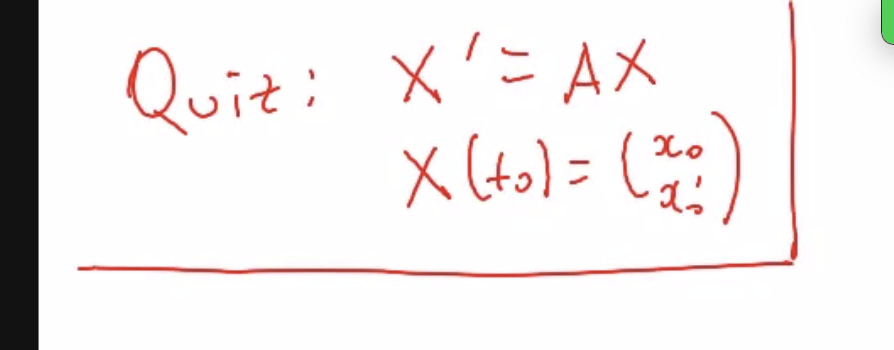 Quit: X' = AX
X(t₀) = (x₀
x₀')